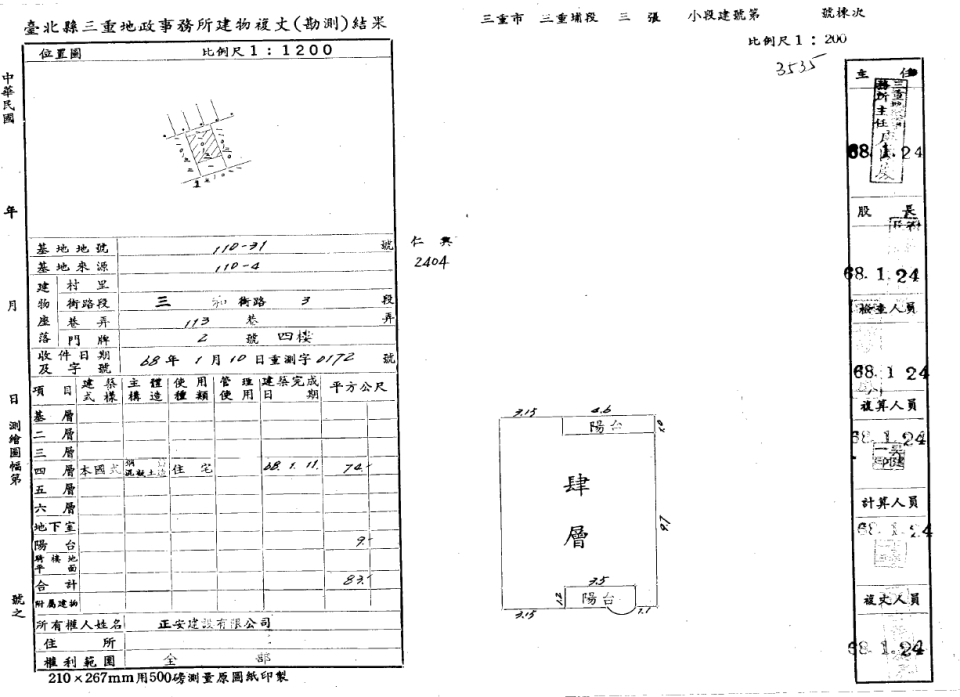 臺北縣三重地政事務所建物複丈(勘測)結果
三重市 三重埔段 三張 小段建號第 號棟次
位置圖 比例尺1:1200
比例尺1:200
3535
中華民國 年 月 日測繪圖幅第 號之
基地地號 110-31 號
基地來源 110-4
建物座落
村里
街路段 三和街路 3 段
巷弄 113 巷 弄
門牌 2 號 四楼
收件日期及字號 68年1月10日重測字0172號
仁興
2404
項目 建築式樣 主體構造 使用種類 管理使用 建築完成日期 平方公尺
基層
二層
三層
四層 本國式 住宅 68.1.11. 74.
五層
六層
地下室
陽台 9.
騎樓地平面
合計 83.
附屬建物
所有權人姓名 正安建設有限公司
住所
權利範圍 全部
210×267mm用500磅測量原圖紙印製
3.15 4.6
陽台
肆層
3.5
1.2 陽台
3.15 1.1
主任
68.1.24
股長
68.1.24
檢查人員
68.1.24
複算人員
68.1.24
計算人員
68.1.24
複丈人員
68.1.24